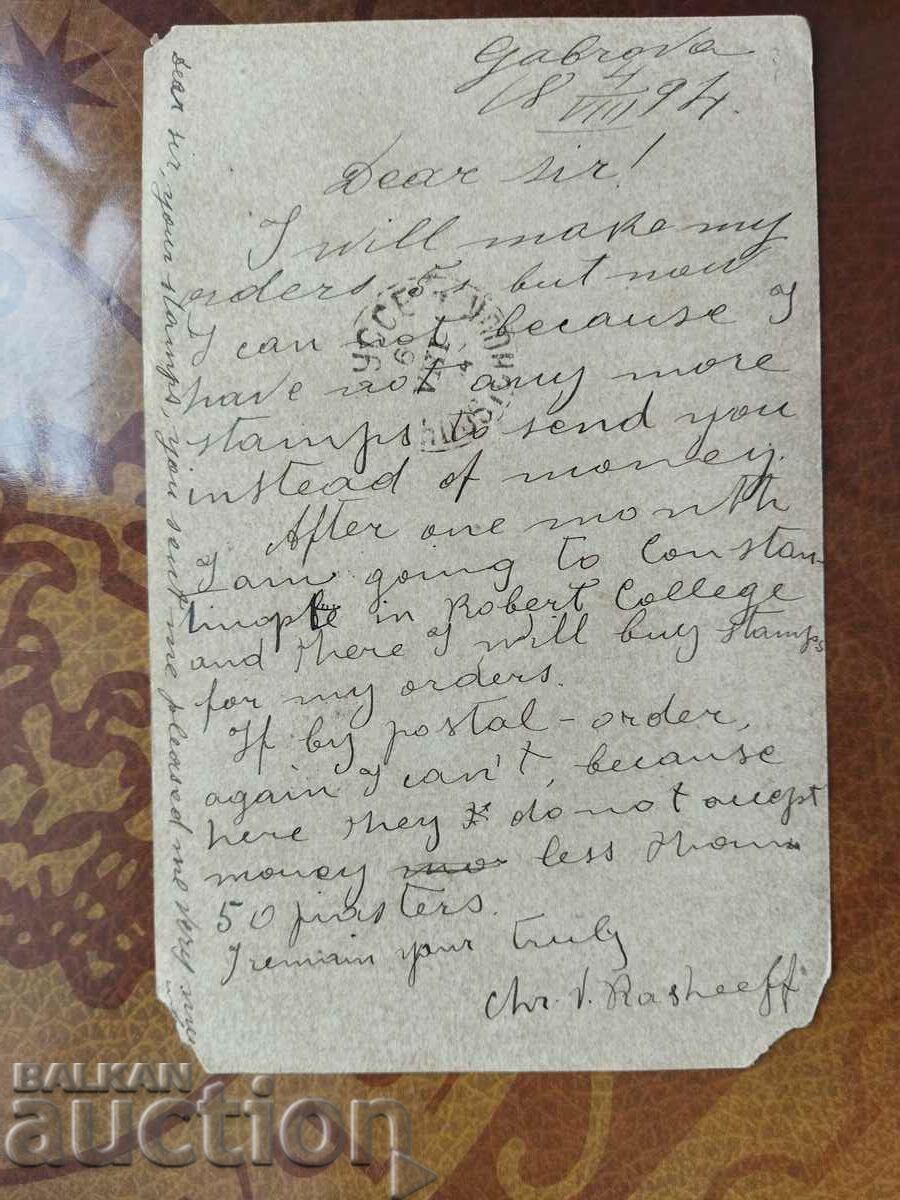 Gabrova
18 4/VIII 94.
Dear sir!
I will make my
orders, but now
I can not, because I
have not any more
stamps to send you
instead of money.
After one month
I am going to Constan-
tinople in Robert College
and there I will buy stamps
for my orders.
If by postal-order,
again I can't, because
here they do not accept
money less than
50 piasters.
I remain your truly
Chr. V. Rasheeff
Dear sir, your stamps, you sent me pleased me very
РУССЕ
BALKAN
auction